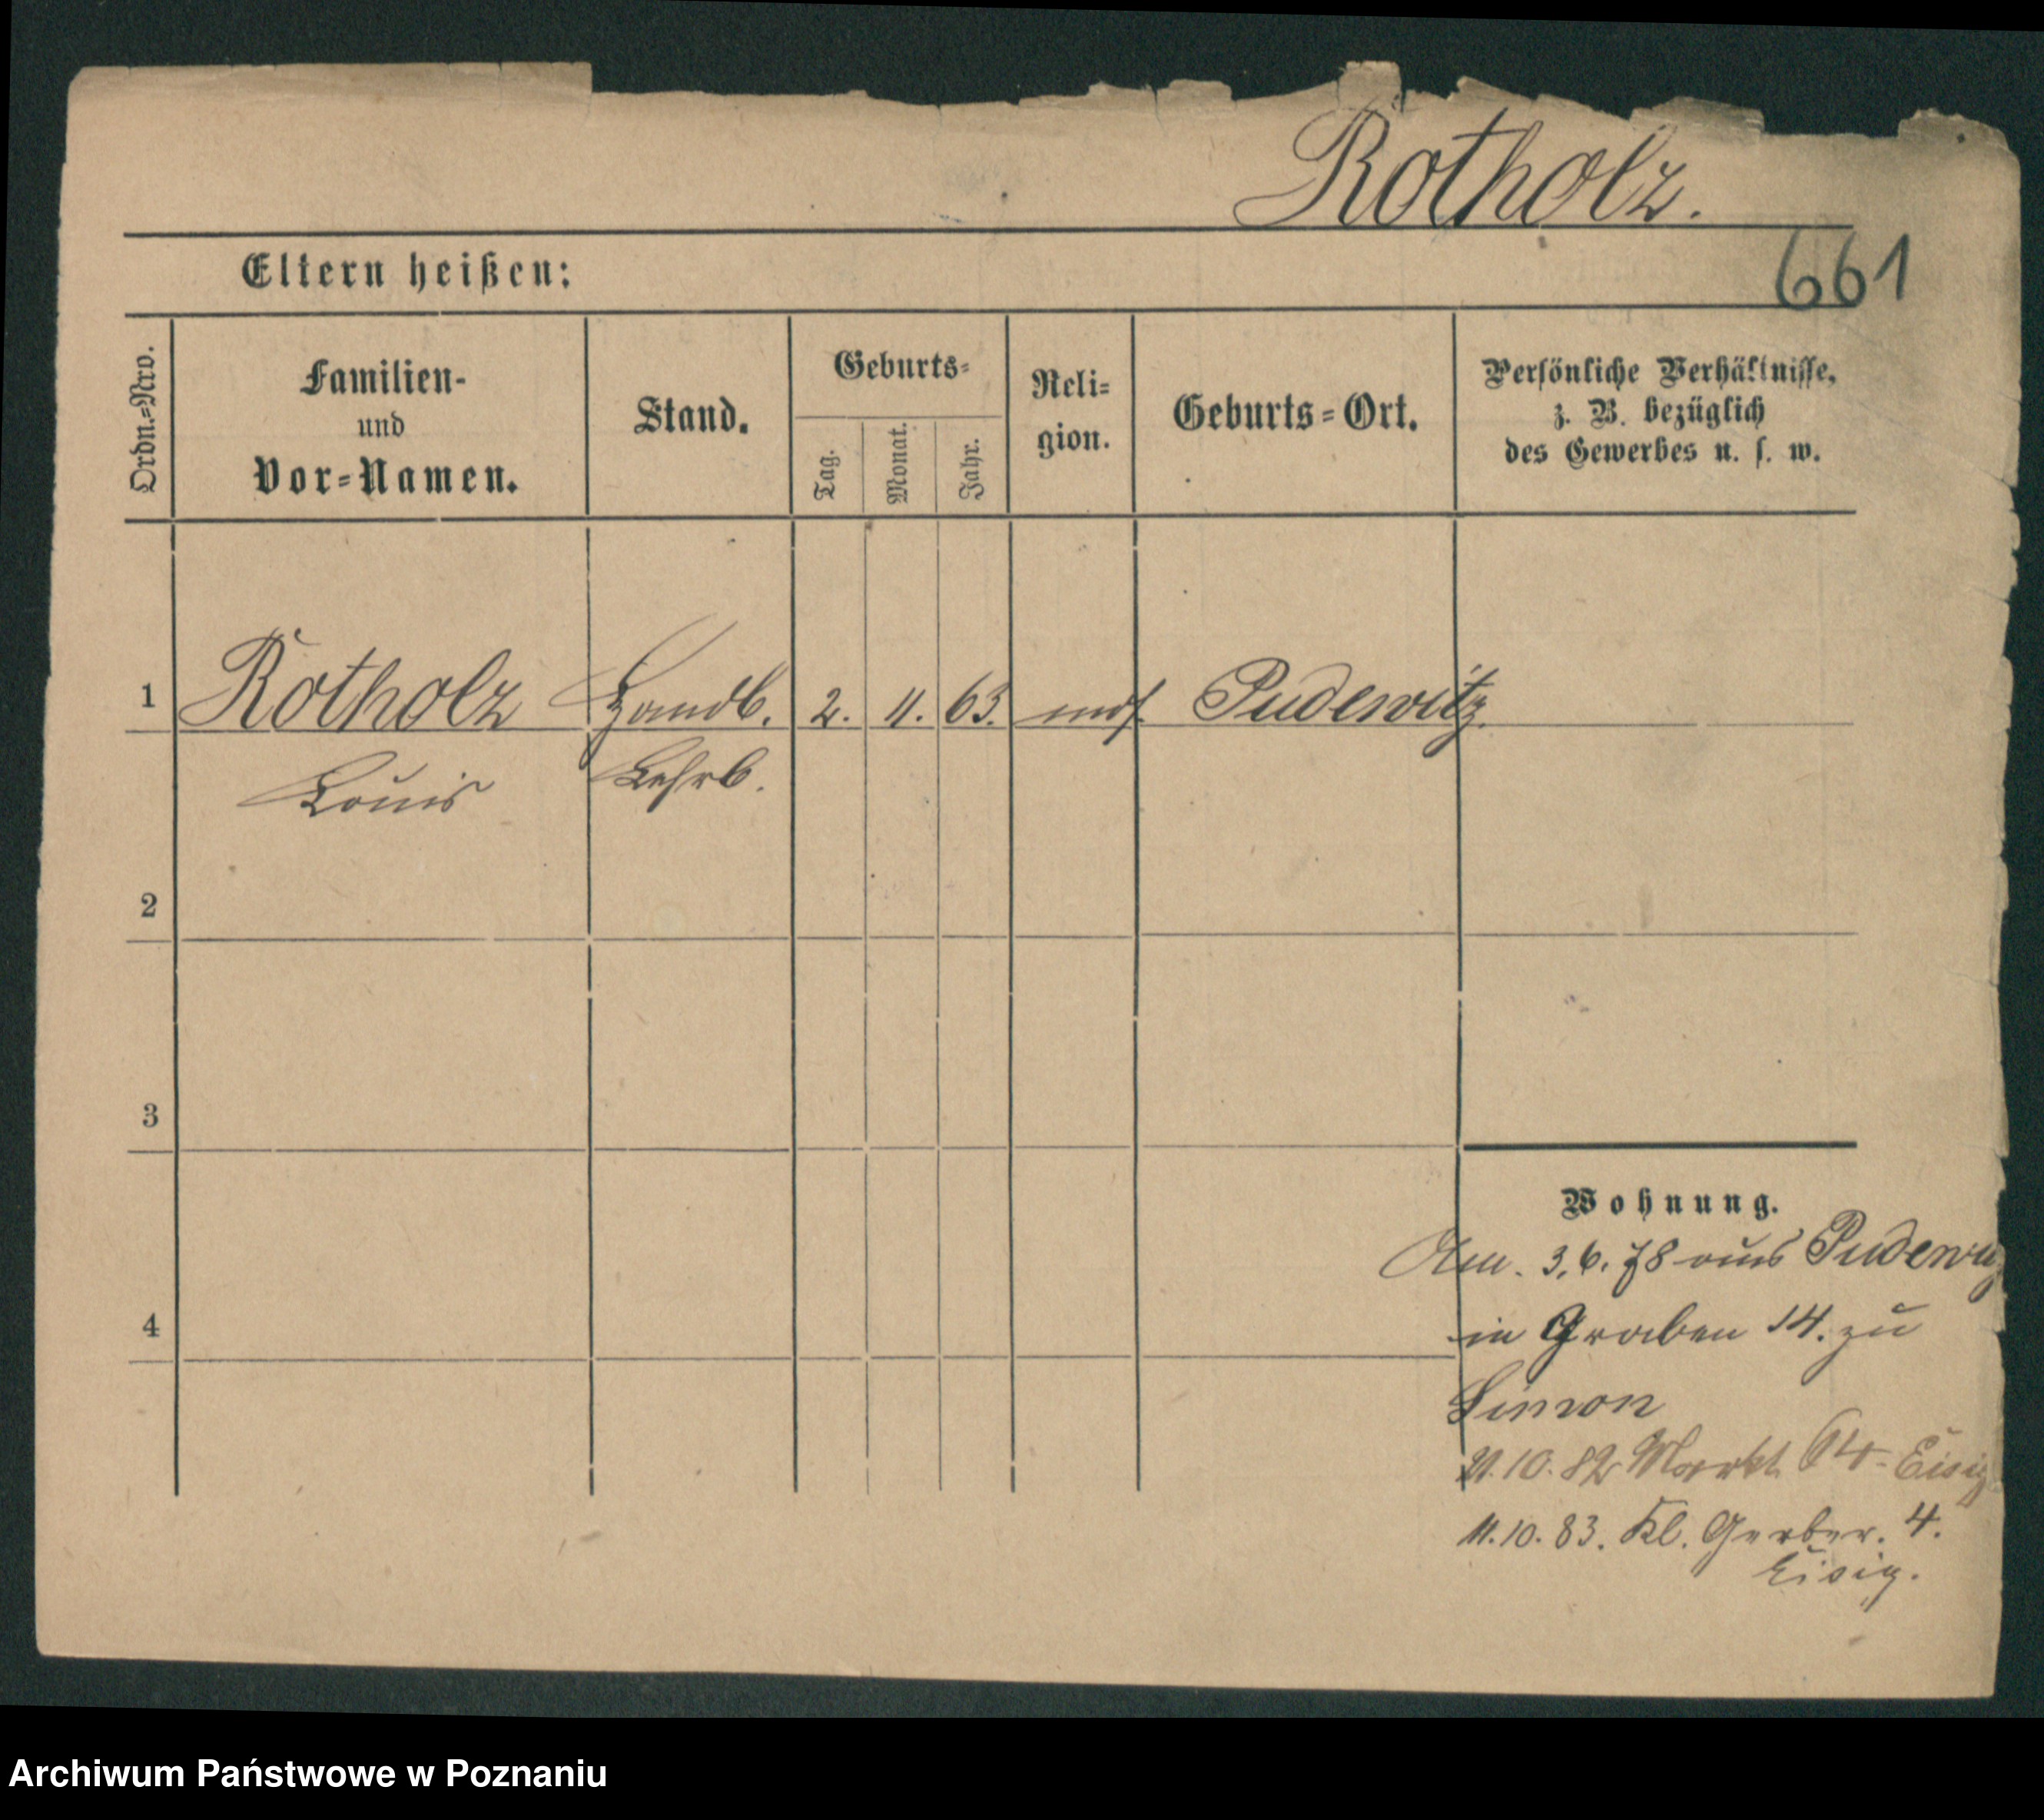 Rotholz.
661
Eltern heißen:
Ordn.=Nro.
Familien-
und
Vor=Namen.
Stand.
Geburts=
Tag.
Monat.
Jahr.
Reli=
gion.
Geburts=Ort.
Persönliche Verhältnisse,
z. B. bezüglich
des Gewerbes u. s. w.
1 Rotholz Handl. 2. 11. 63. mos. Pudewitz.
Louis Lehrl.
2
3
4
Wohnung.
Am. 3.6.78 aus Pudewitz
in Graben 14. zu
Simon
21.10.82 Markt 64. Eisig
11.10.83. Kl. Gerber. 4.
Eisig.
Archiwum Państwowe w Poznaniu